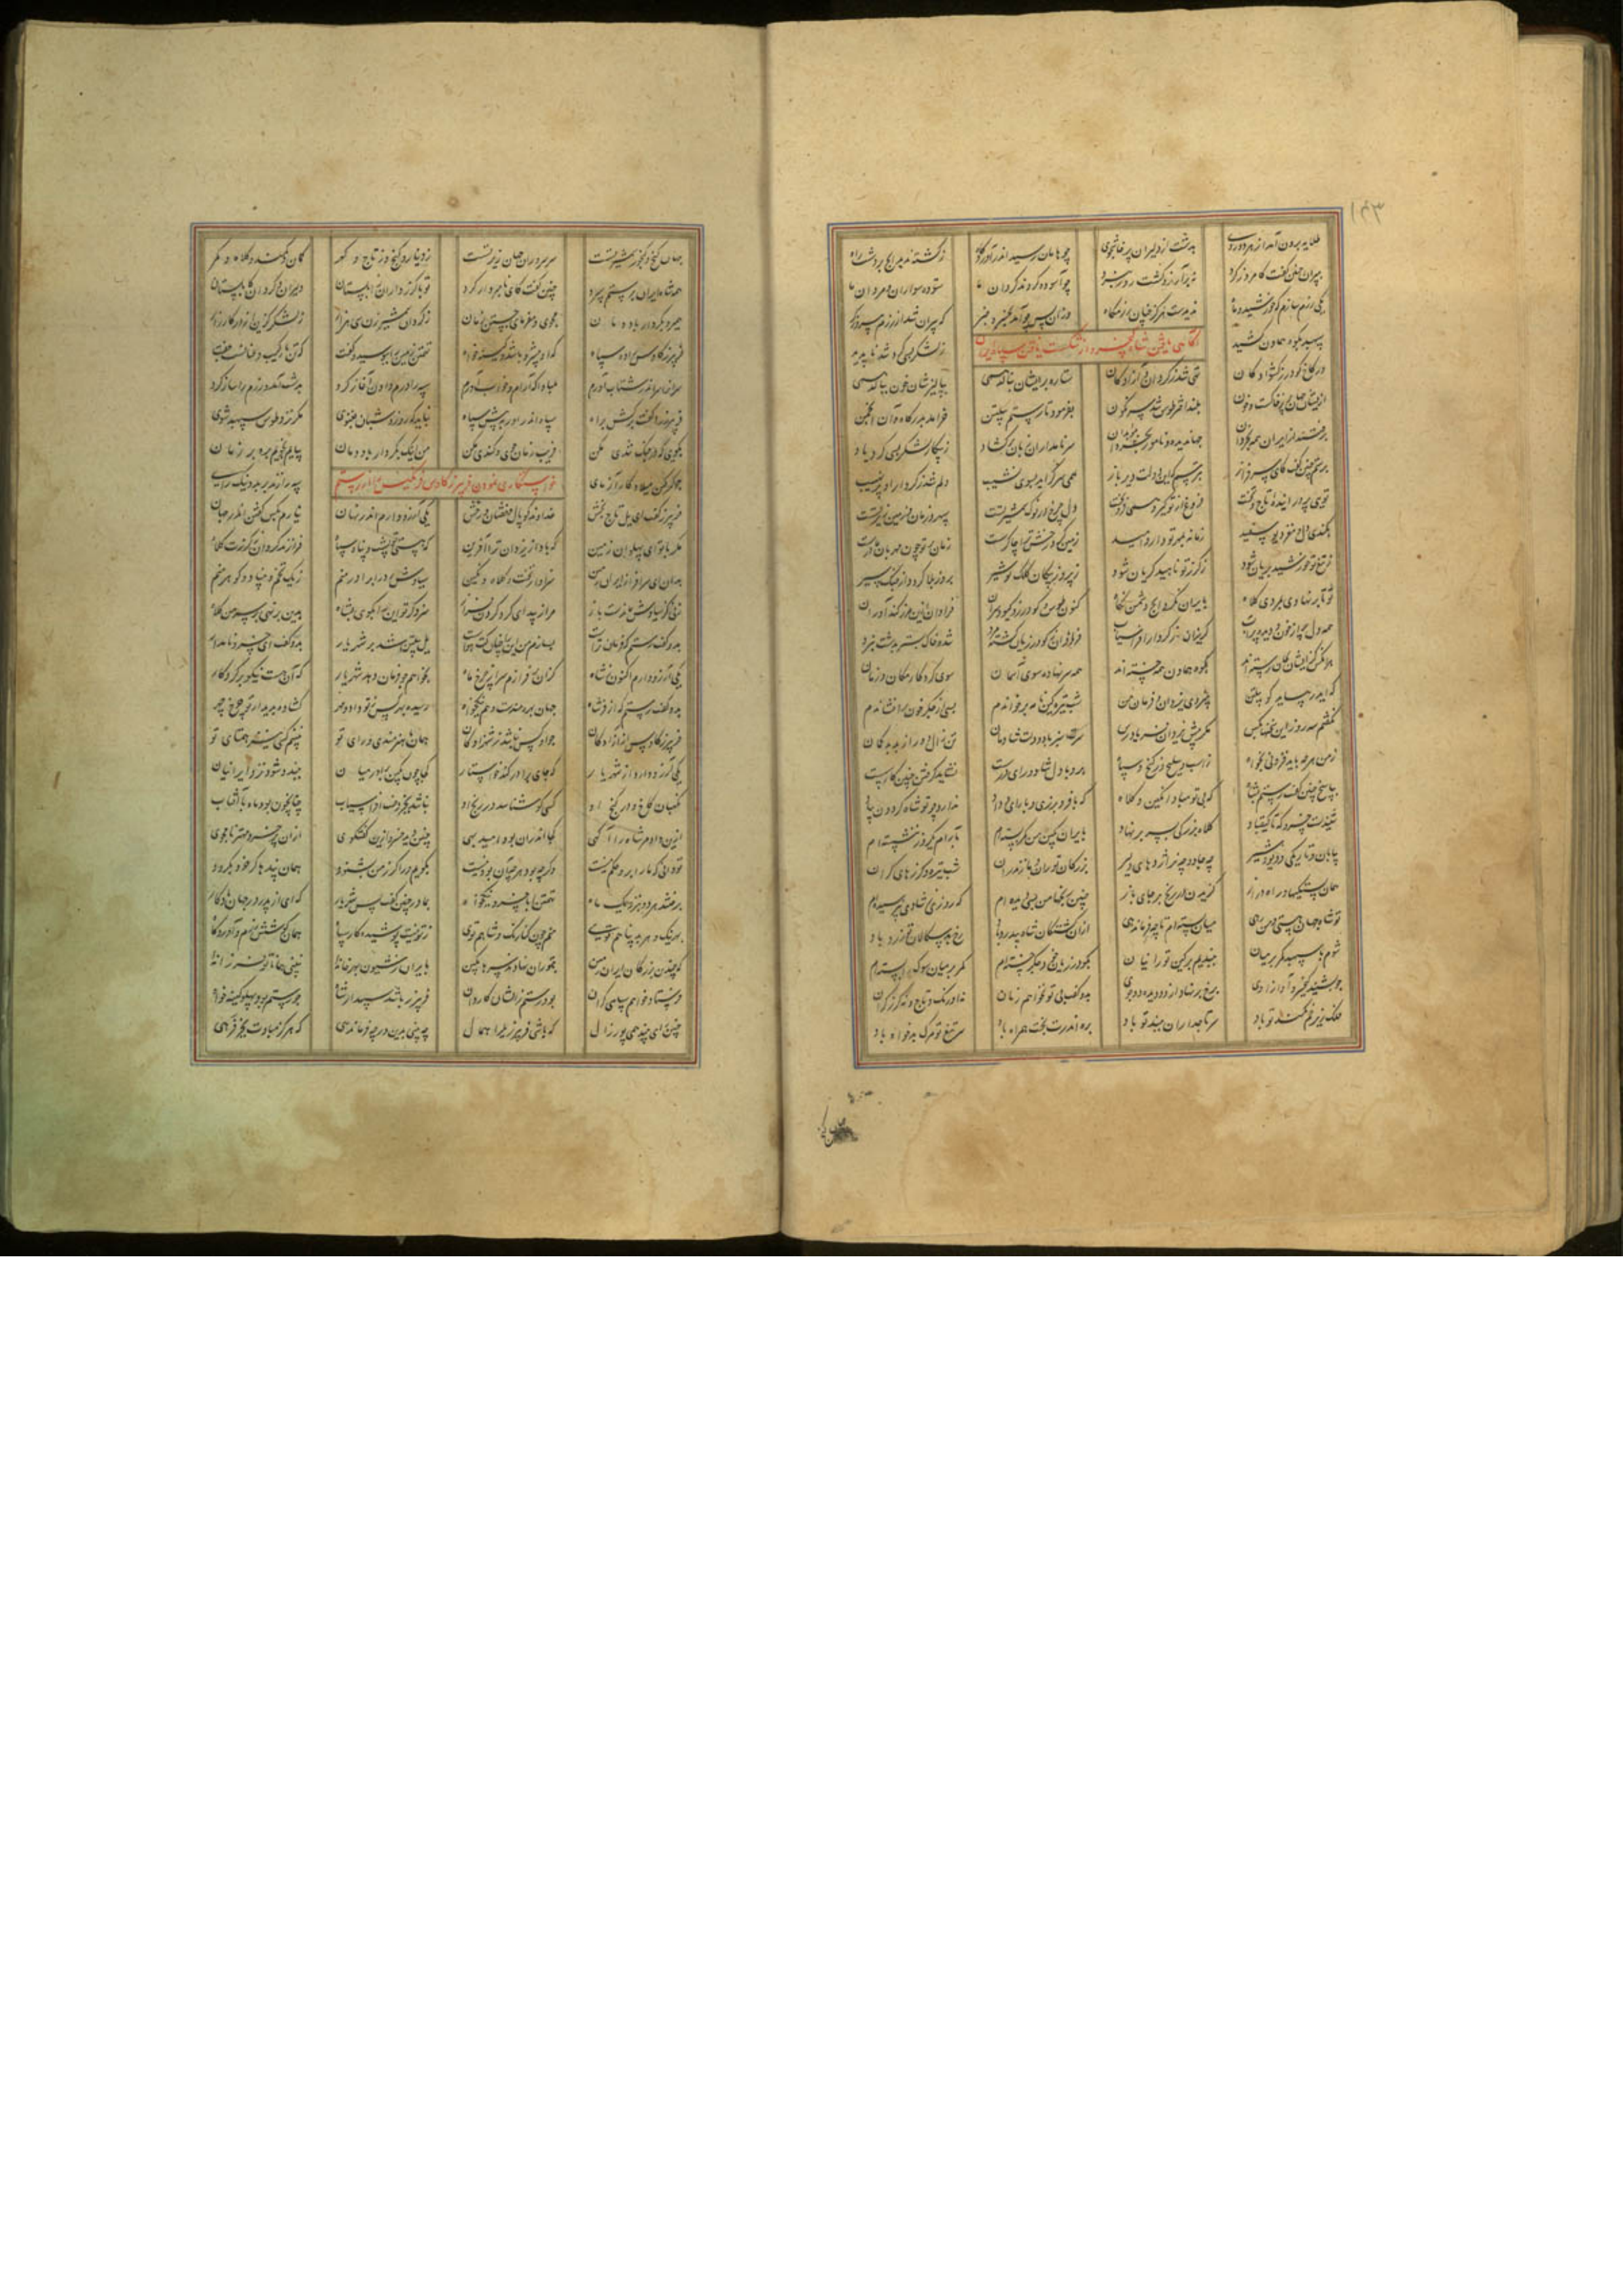 ۱۴۳
طلایه برون آمد از هر دو روی بدشت از دلیران پرخاشجوی چو هامان رسید اندر آوردگاه ز کشته ندید ایچ بر دشت راه
بپیران چنین گفت کامروز گرد نه بر آرزو گشت روز نبرد چو آسوده گردند گردان ما ستوده سواران و مردان ما
یکی رزم سازم که خورشید و ماه ندیدست هرگز چنان رزمگاه وزان پس چو آمد بخسرو خبر که پیران شد از رزم پیروزگر
سپهبد بکوه هماون کشید ز لشکر بسی گرد شد ناپدید
آگاهی یافتن شاه کیخسرو از شکست یافتن سپاه ایران
در کاخ گودرز کشوادگان تهی شد ز گردان و آزادگان ستاره بر ایشان بنالد همی ببالیزشان خون ببالد همی
ازیشان جهان پر ز خاکست و خون بلند اختر طوس شد سرنگون بفرمود تا رستم پیلتن خرامد بدرگاه با آن انجمن
برفتند از ایران همه بخردان جهاندیده و نامور موبدان سر نامداران زبان برگشاد ز پیکار لشکر بسی کرد یاد
برستم چنین گفت کای سرفراز بترسم که این دولت دیرباز همی سر گراید بسوی نشیب دلم شد ز کردار او پرنهیب
توی پروراننده تاج و تخت فروغ از تو گیرد همی روی بخت دل چرخ در نوک شمشیر تست سپهر و زمان و زمین زیر تست
بکندی دل و مغز دیو سپید زمانه بمهر تو دارد امید زمین گرد رخش ترا چاکرست زمان بر تو چون مهربان مادرست
ز تیغ تو خورشید بریان شود ز گرز تو ناهید گریان شود ز نیروی پیکان کلک تو شیر بروز بلا گردد از جنگ سیر
تو تا بر نهادی بمردی کلاه بایران نکرد ایچ دشمن نگاه کنون طوس و گودرز و گیو و سران فراوان ازین مرز کندآوران
همه دل پر از خون و دیده پر آب گریزان ز کردار افراسیاب فراوان ز گودرزیان کشته مرد شده خاک بستر بدشت نبرد
هر آنکس کزیشان بجان رسته اند بکوه هماون همه خسته اند همه سر نهاده سوی آسمان سوی کردگار مکان و زمان
که ایدر بیاید گو پیلتن بنیروی یزدان و فرمان من شب تیره کین نامه برخواندم بسی از جگر خون برافشاندم
نگفتم سه روز این سخن را بکس مگر پیش یزدان فریادرس سرت سبز باد و دلت شادمان تن زال دور از بد بدگمان
ز من هر چه باید فزونی بخواه ز اسب و سلیح و ز گنج و سپاه برو با دل شاد و رای درست نشاید گرفتن چنین کار سست
بپاسخ چنین گفت رستم بشاه که بی تو مبادا نگین و کلاه که با فر و برزی و با رای و داد ندارد چو تو شاه گردون بیاد
شنیدست خسرو که تا کیقباد کلاه بزرگی بسر بر نهاد بایران بکین من کمر بسته ام بآرام یک روز ننشسته ام
بیابان و تاریکی و دیو و شیر چه جادو چه نر اژدهای دلیر بزرگان توران و مازندران شب تیره و گرزهای گران
همان تشنگیها و راه دراز گزیدن در رنج بر جای ناز چنین رنجها من بسی دیده ام که روزی ز شادی نپرسیده ام
تو شاه جهانی و من چون رهی میان بسته ام تا چه فرمان دهی ازان کشتگان شاه بیدرد باد رخ بدسگالان تو زرد باد
شوم با سپه بر کمر بر میان ببندم برین کین تورانیان ز گودرزیان خود جگر خسته ام کمر بر میان سوگ را بسته ام
چو بشنید کیخسرو آواز اوی برخ برنهاد از دو دیده دو جوی بدو گفت بی تو نخواهم زمان نه اورنگ و تاج و نه گرز گران
فلک زیر خم کمند تو باد سر تاجداران ببند تو باد بره اندرت بخت همراه باد سر تیغ تو مرگ بدخواه باد
جهان گنج و گنجور شمشیر تست سر سروران جهان زیر تست ز دینار و گنج و ز تاج و گهر کمان و کمند و کلاه و کمر
همه شاه ایران برستم سپرد چنین گفت کای نامبردار گرد تو با گرزداران زابلستان دلیران و گردان کابلستان
همی رو بکردار باد دمان مجوی و مفرمای جستن زمان ز گردان شمشیرزن سی هزار ز لشکر گزین از در کارزار
فریبرز کاوس را ده سپاه که او پیشرو باشد و کینه خواه تهمتن زمین را ببوسید و گفت که با من رکیب و عنانست جفت
سرانرا سر اندر شتاب آورم مبادا که آرام و خواب آورم سپه را درم دادن آغاز کرد بدشت آمد و رزم را ساز کرد
فریبرز را گفت برکش براه سپاه اندر آور به پیش سپاه نباید که روز و شبان بغنوی مگر نزد طوس سپهبد شوی
بگوی که در جنگ تندی مکن فریب زمان جوی و کندی مکن من اینک بکردار باد دمان بیایم نجویم بره بر زمان
چو گرگین میلاد کارآزمای سپه را زند بر بد و نیک رای
خواستگاری نمودن فریبرز کاوس فرنگیس را از رستم
فریبرز گفت ای یل تاج بخش خداوند کوپال و خفتان و رخش یکی آرزو دارم اندر نهان نیارم بکس گفتن اندر جهان
مگر با تو ای پهلوان زمین که بادا ز یزدان ترا آفرین که هستی تو پشت و پناه سپاه فرازند گردان بگرزت کلاه
بدان ای سرافراز ایران زمین سزاوار تخت و کلاه و نگین سیاوش رد را برادر منم ز یک تخم و بنیاد و گوهر منم
زنی کز سیاوش بماندست باز مرا زیبد ای گرد گردن فراز سزد گر تو این را بگوی بشاه بدین برنهی بر سر من کلاه
بدو گفت رستم که فرمان تراست بسازم من این یل پیلتن شد بر شهریار بدو گفت ای خسرو نامدار
یکی آرزو دارم اکنون ز شاه کزان بر فرازم سر از چرخ ماه بخواهم چو فرمان دهد شهریار که آن هست نیکو بر کردگار
بدو گفت رستم که از فر شاه جهان رسیده بهر کس ز تو داد و مهر گشاده بدیدار تو چرخ چهر
فریبرز کاوس از آزادگان چو او کس نباشد ز شهزادگان همان با هنرمندی و رای تو نبینم کسی نیز همتای تو
یکی آرزو دارد از شهریار که جای برادر کند خواستار کجا چون بکین برادر میان ببندد شود نزد ایرانیان
نگهبان کاخ و در گنج او کسی کو شناسد در رنج او نباشد بجز دخت افراسیاب چنان چون بود ماه با آفتاب
ازین در دهم شاه را آگهی کجا اندران بود امید بهی چنین دید خسرو ازین گفتگوی ازان خسرو مهتر نامجوی
تو دانی که ما را برو حکم نیست بگویم ورا گر ز من بشنود همان پندها گر خرد بگرود
برفتند هر دو بنزدیک ماه تهمتن ابا خسرو نیکخواه بمادر چنین گفت پس شهریار که ای از پدر در جهان یادگار
بهر نیک و هر بد پناهم توی منم چون کنارنگ و شاهم توی ز تو نیست پوشیده کار سپاه همان کوشش و رزم و آوردگاه
که چندین بزرگان ایران زمین بتوران نهادند سرها بکین بایران ز شیون بهر خانه نبینی همانا تو فرزانه
فرستاد خواهم سپاهی گران بود رستم زالشان کاروان فریبرز باشد سپهدار شاه چو رستم بود پهلو کینه خواه
چنین رای بیند همی پور زال که باشی فریبرز را همال چه بینی بدین در چه فرمان دهی که هرگز مبادت بجز فرهی